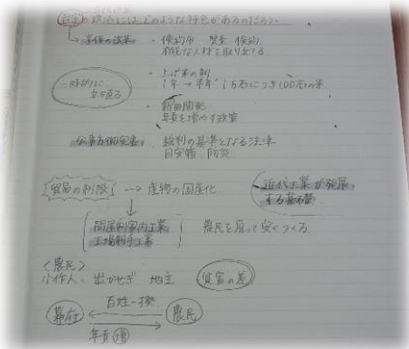 の政治にはどのような特色があるのだろう。
享保の改革 ・倹約令 質素 倹約
有能な人材を取り立てる
一時的に立ち直る
・上げ米の制
1年→半年 1万石につき100石の米
・新田開発
年貢を増やす政策
公事方御定書 裁判の基準となる法律
目安箱 防災
貿易の制限 → 産物の国産化
近代工業が発展する基礎
問屋制家内工業
工場制手工業
農民を雇って安くつくる
〈農民〉
小作人 出かせぎ 地主 貧富の差
幕府 百姓一揆 農民
年貢 増